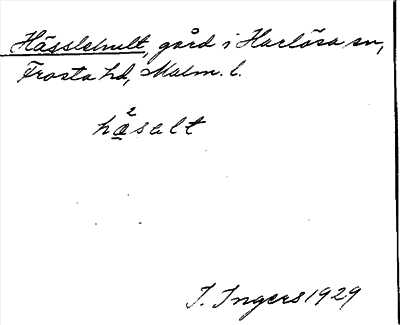 Hässlehult, gård i Harlösa sn,
Frosta hd, Malm. l.
ha²salt
I. Ingers 1929